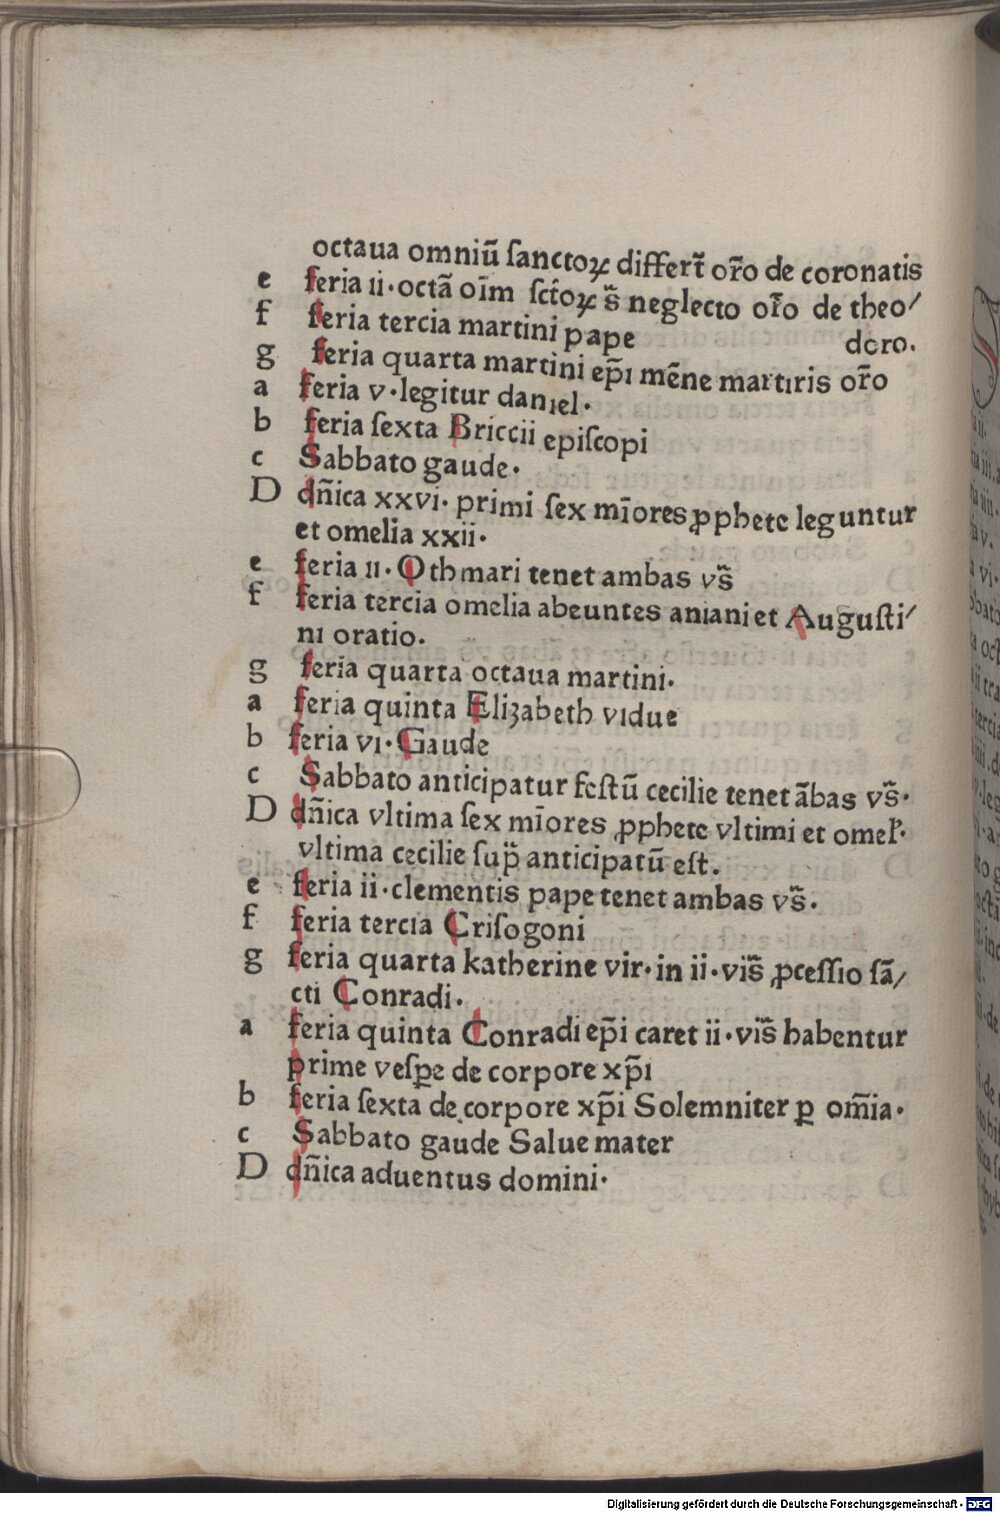 octaua omniū ſanctoꝝ differt̄ or̄o de coronatis
e feria ii·octā oīm ſctōꝝ s̄ neglecto or̄o de theo/
f feria tercia martini pape doro.
g feria quarta martini ep̄ı mēne martıris or̄o
a feria v·legitur danıel·
b feria ſexta Briccii epiſcopi
c Sabbato gaude·
D dn̄ica xxvı· primi ſex mīores ꝓphete leguntur
et omelia xxii·
e feria ıı·Othmari tenet ambas vs̄
f feria tercia omelia abeuntes aniani et Auguſti/
nı oratio.
g feria quarta octaua martini.
a feria quinta Elizabeth vıdue
b feria vı·Gaude
c Sabbato anticipatur feſtū cecilie tenet ābas vs̄·
D dn̄ica vltima ſex mīores ꝓphete vltimi et omel̓·
vltima cecilie ſup̄ anticipatū eſt.
e feria ii·clementis pape tenet ambas vs̄·
f feria tercia Criſogoni
g feria quarta katherine vir·in ii·vis̄ ꝓceſſio ſā/
cti Conradi·
a feria quinta Conradi ep̄i caret ii·vis̄ habentur
prime veſꝑe de corpore xp̄ı
b feria ſexta de corpore xp̄i Solemniter ꝑ om̄ia·
c Sabbato gaude Salue mater
D dn̄ica aduentus domini·
Digitalisierung gefördert durch die Deutsche Forschungsgemeinschaft · DFG